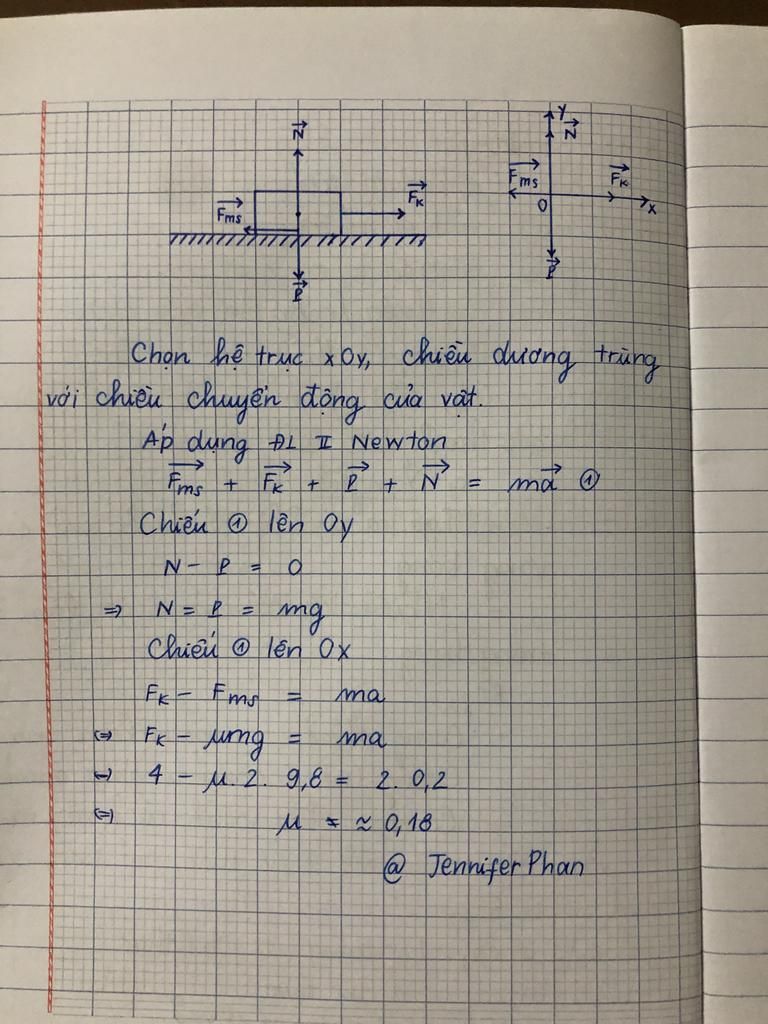 N⃗
F⃗ms
F⃗k
P⃗
y
N⃗
F⃗ms
F⃗k
O
x
P⃗
Chọn hệ trục xOy, chiều dương trùng
với chiều chuyển động của vật.
Áp dụng ĐL II Newton
F⃗ms + F⃗k + P⃗ + N⃗ = ma⃗ ①
Chiếu ① lên Oy
N - P = 0
⇒ N = P = mg
Chiếu ① lên Ox
Fk - Fms = ma
⇔ Fk - μmg = ma
⇔ 4 - μ. 2. 9,8 = 2. 0,2
⇔ μ = ≈ 0,18
@ Jennifer Phan